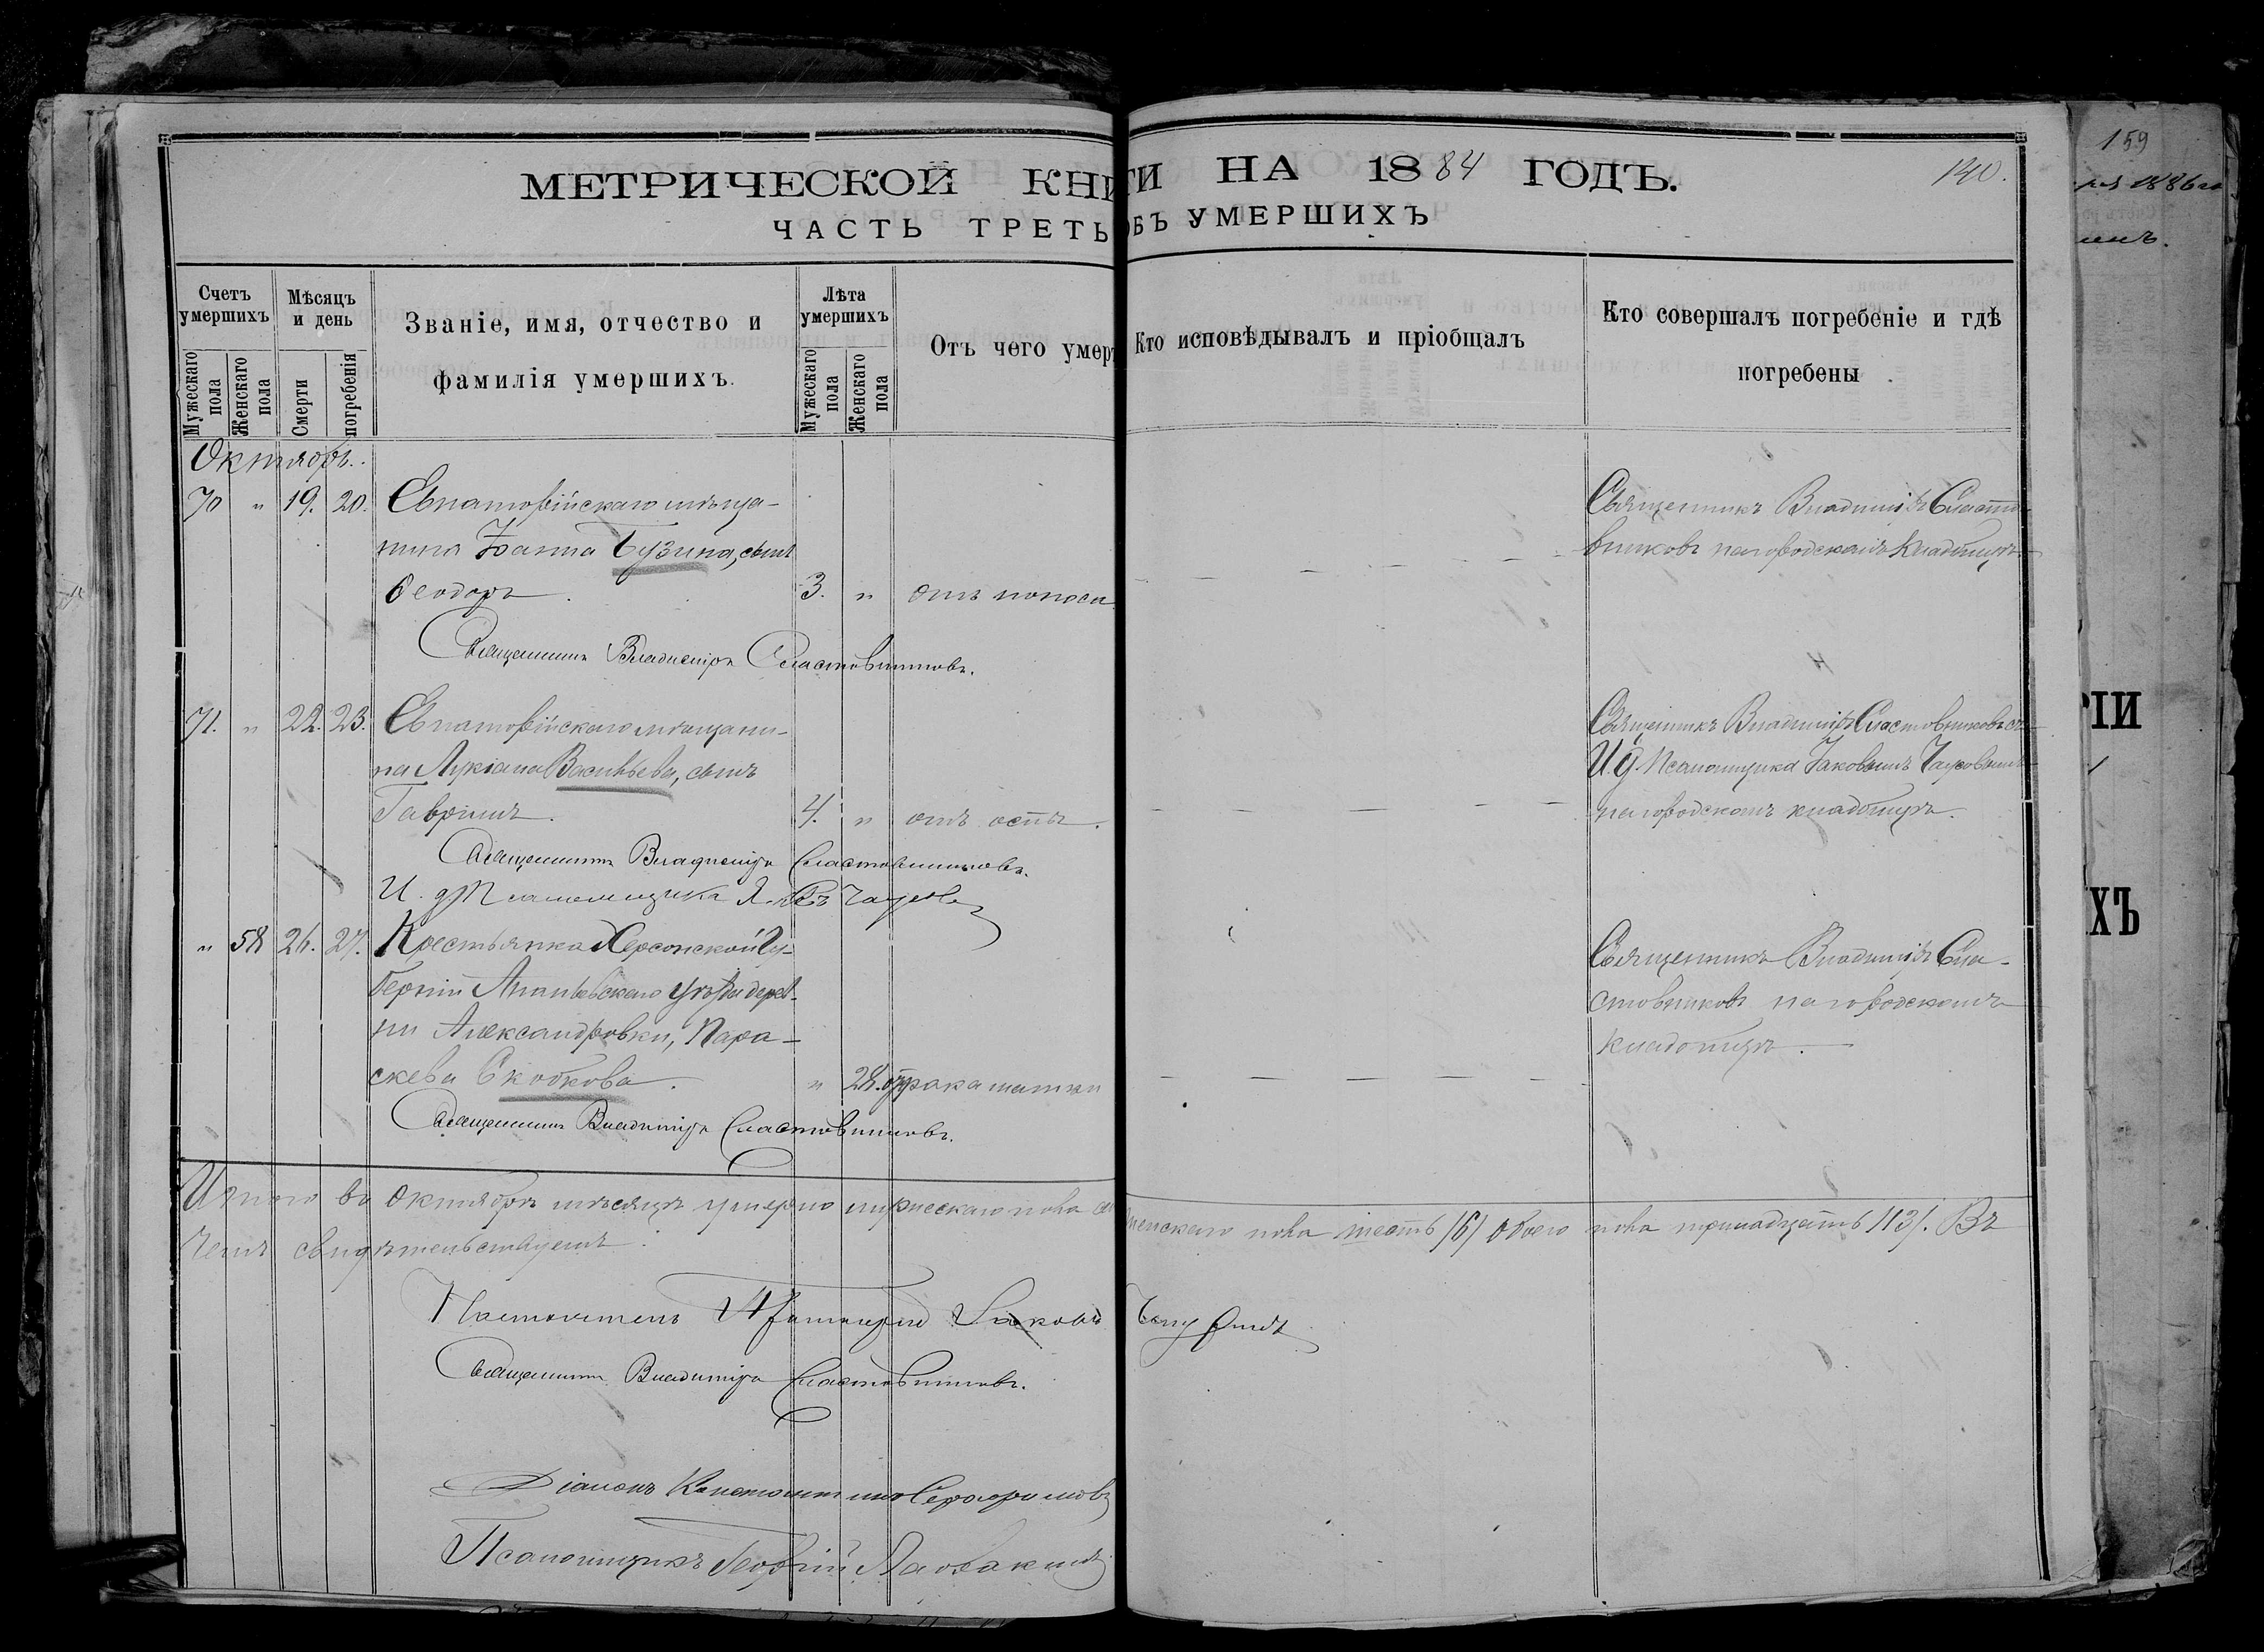 МЕТРИЧЕСКОЙ КНИГИ НА 1884 ГОДЪ.
140.
ЧАСТЬ ТРЕТЬ ОБЪ УМЕРШИХЪ
Счетъ умершихъ
Мѣсяцъ и день
Званіе, имя, отчество и фамилія умершихъ.
Лѣта умершихъ
Отъ чего умер
Кто исповѣдывалъ и пріобщалъ
Кто совершалъ погребеніе и гдѣ погребены
Мужескаго пола
Женскаго пола
Смерти
погребенія
Мужескаго пола
Женскаго пола
Октябрь.
70 " 19. 20. Евпаторійскаго мѣща-
нина Іоанна Бузина, сынъ
Ѳеодоръ. 3. " отъ поноса
Священникъ Владиміръ Сласто-
вниковъ на городскомъ кладбищѣ.
Священникъ Владиміръ Сластовниковъ.
71. " 22. 23. Евпаторійскаго мѣщани-
на Лукіана Васильева, сынъ
Гавріилъ. 4. " отъ оспы.
Священникъ Владиміръ Сластовниковъ съ
И. д. Псаломщика Іаковомъ
на городскомъ кладбищѣ.
Священникъ Владиміръ Сластовниковъ.
И. д. Псаломщика
" 58 26. 27. Крестьянка Херсонской Гу-
берніи Ананьевскаго уѣзда дерев-
ни Александровки, Пара-
скева Скобкова. " 28. отъ рака матки
Священникъ Владиміръ Сла-
стовниковъ на городскомъ
кладбищѣ.
Священникъ Владиміръ Сластовниковъ.
Итого въ Октябрѣ мѣсяцѣ умерло мужескаго пола женскаго пола шесть /6/ обоего пола тринадцать /13/. Въ
чемъ свидѣтельствуемъ:
Настоятель Протоіерей Іаковъ
Священникъ Владиміръ Сластовниковъ.
Діаконъ Константинъ Серафимовъ
Псаломщикъ Георгій
159
1886 го
РІИ
ХЪ